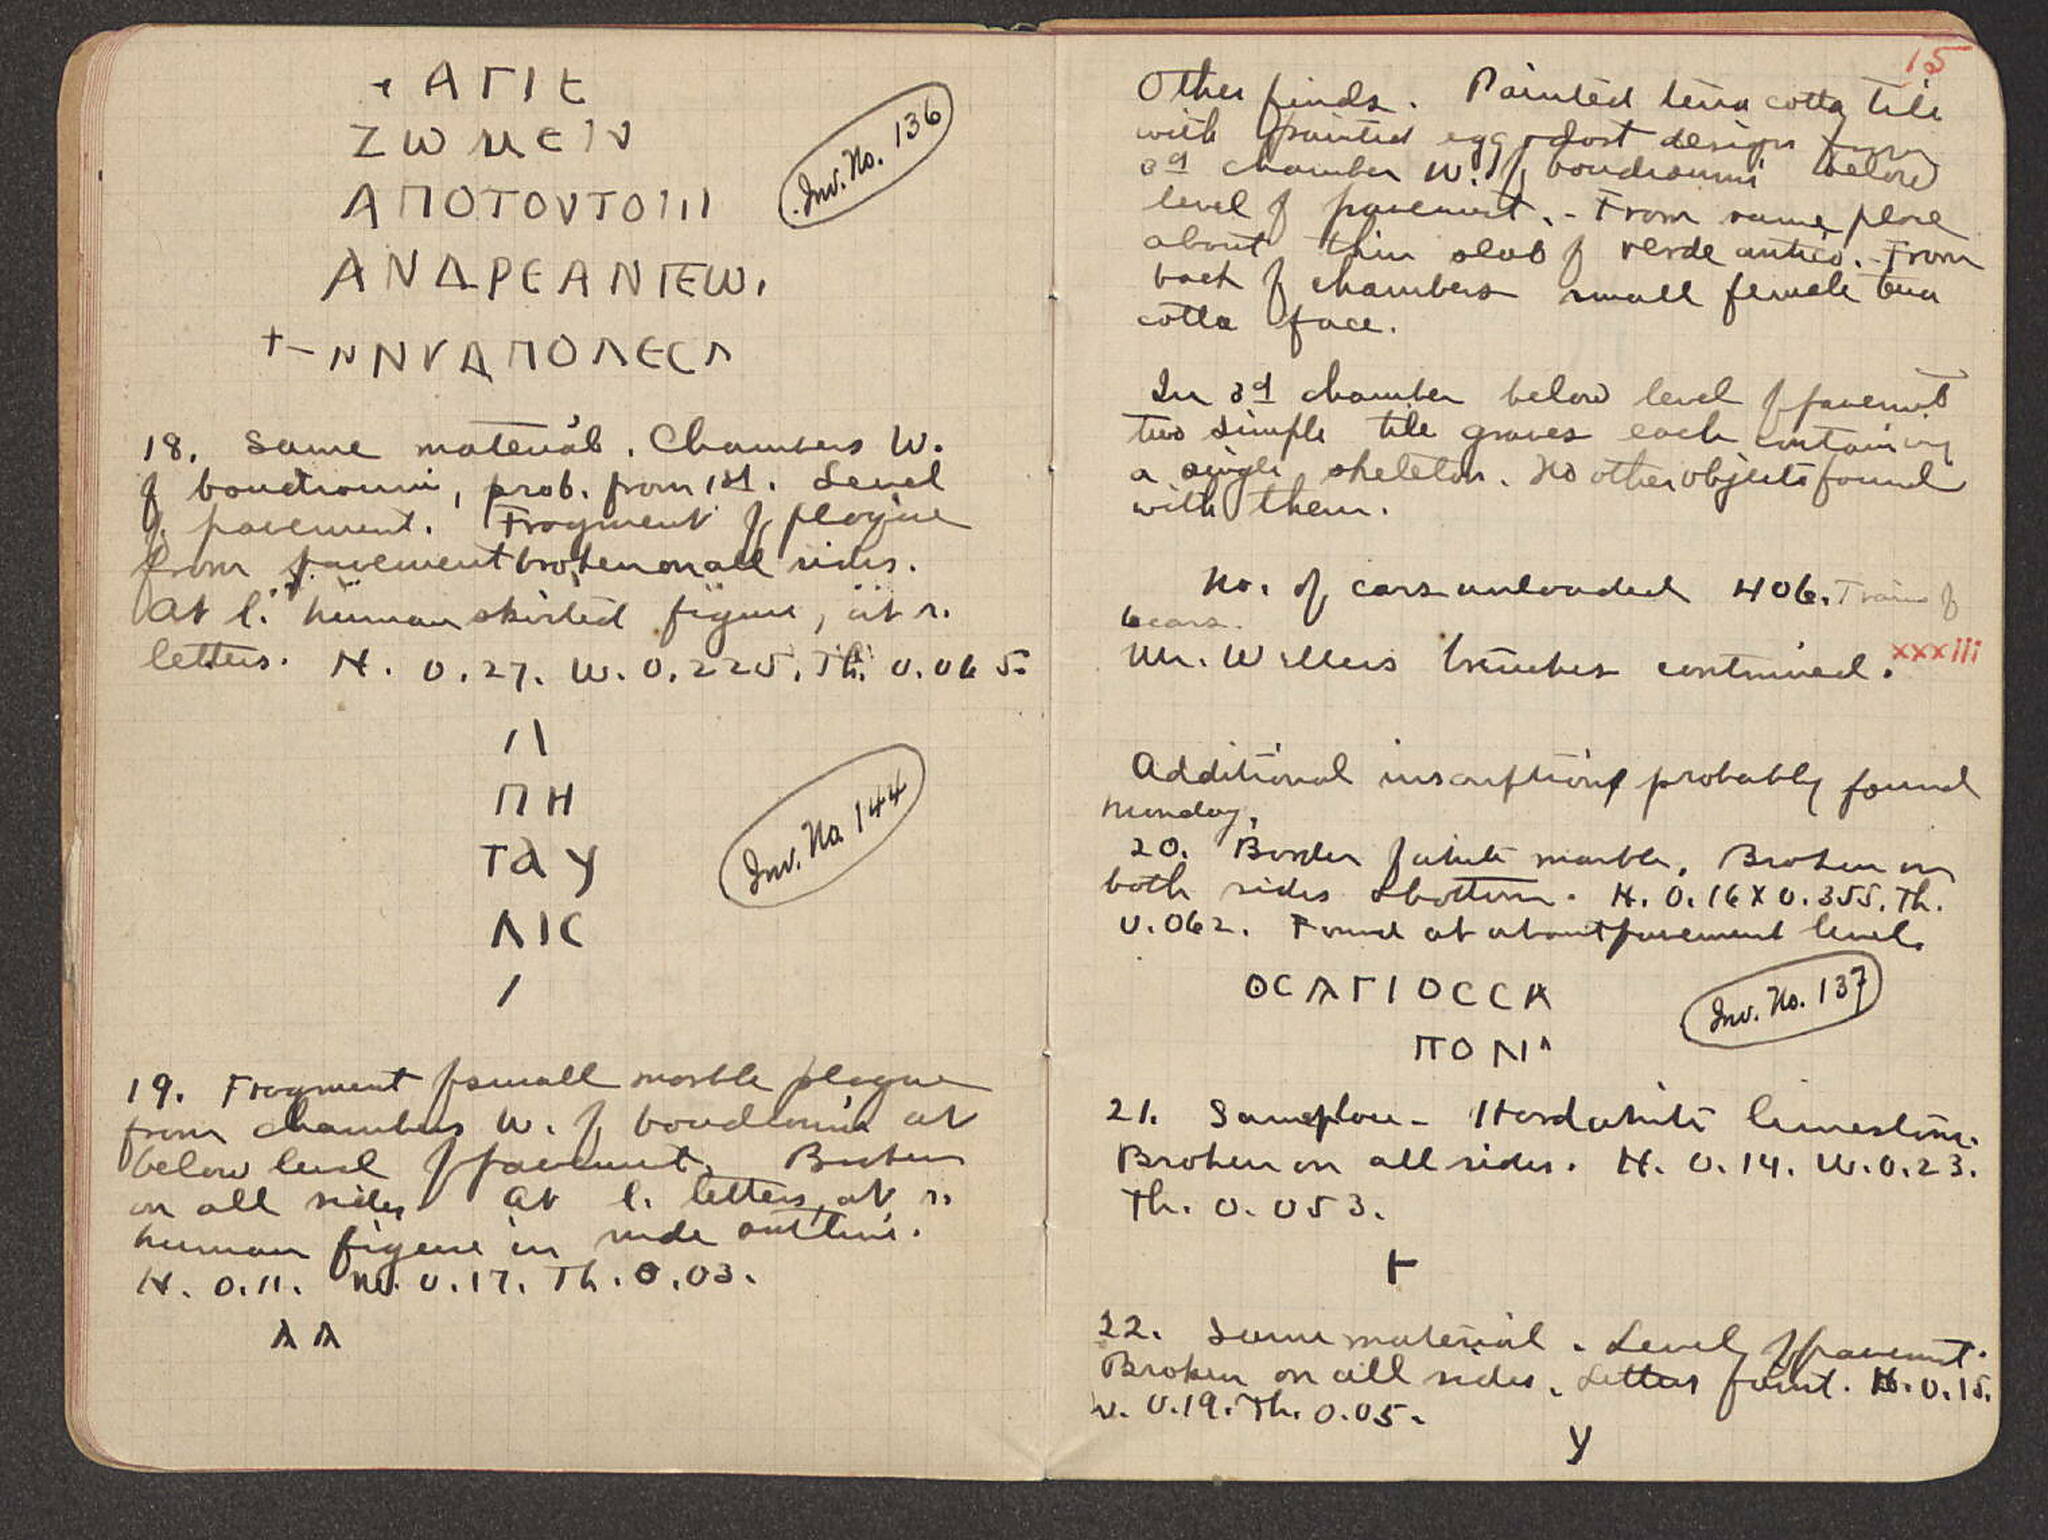 + ΑΓΙΕ
ΖΩΜΕΙΝ
ΑΠΟΤΟΥΤΟΙΙΙ
ΑΝΔΡΕΑΝΓΕΩ.
+-ΝΝΥΔΠΟΛΕCΛ
Inv. No. 136
18. Same material. Chambers W.
of boudroumi, prob. from 1st. Level
of pavement. Fragment of plaque
from pavement broken on all sides.
At l. human skirted figure, at r.
letters. H. 0.27. W. 0.225. Th. 0.065.
/\
ΠΗ
ΤαΥ
ΛΙC
/
Inv. No. 144
19. Fragment of small marble plaque
from chambers W. of boudroumi at
below level of pavement. Broken
on all sides. At l. letters, at r.
human figure in rude outline.
H. 0.11. W. 0.17. Th. 0.03.
λλ
15
Other finds. Painted terra cotta tile
with painted egg & dart design from
3d chamber W. of boudroumi below
level of pavement. - From same place
about thin slab of verde antico. - From
back of chambers small female terra
cotta face.
In 3d chamber below level of pavement
two simple tile graves each containing
a single skeleton. No other objects found
with them.
No. of cars unloaded 406. Train of
6 cars.
Mr. Willers trenches continued. xxxiii
Additional inscriptions probably found
Monday.
20. Border of white marble. Broken on
both sides & bottom. H. 0.16 X 0.355. Th.
0.062. Found at about pavement level.
ΟCΑΓΙΟCCΑ
ΠΟΛΙ^
Inv. No. 137
21. Same place - Hard white limestone.
Broken on all sides. H. 0.14. W. 0.23.
Th. 0.053.
+
22. Same material. Level of pavement.
Broken on all sides. Letters faint. H. 0.15.
W. 0.19. Th. 0.05.
Υ